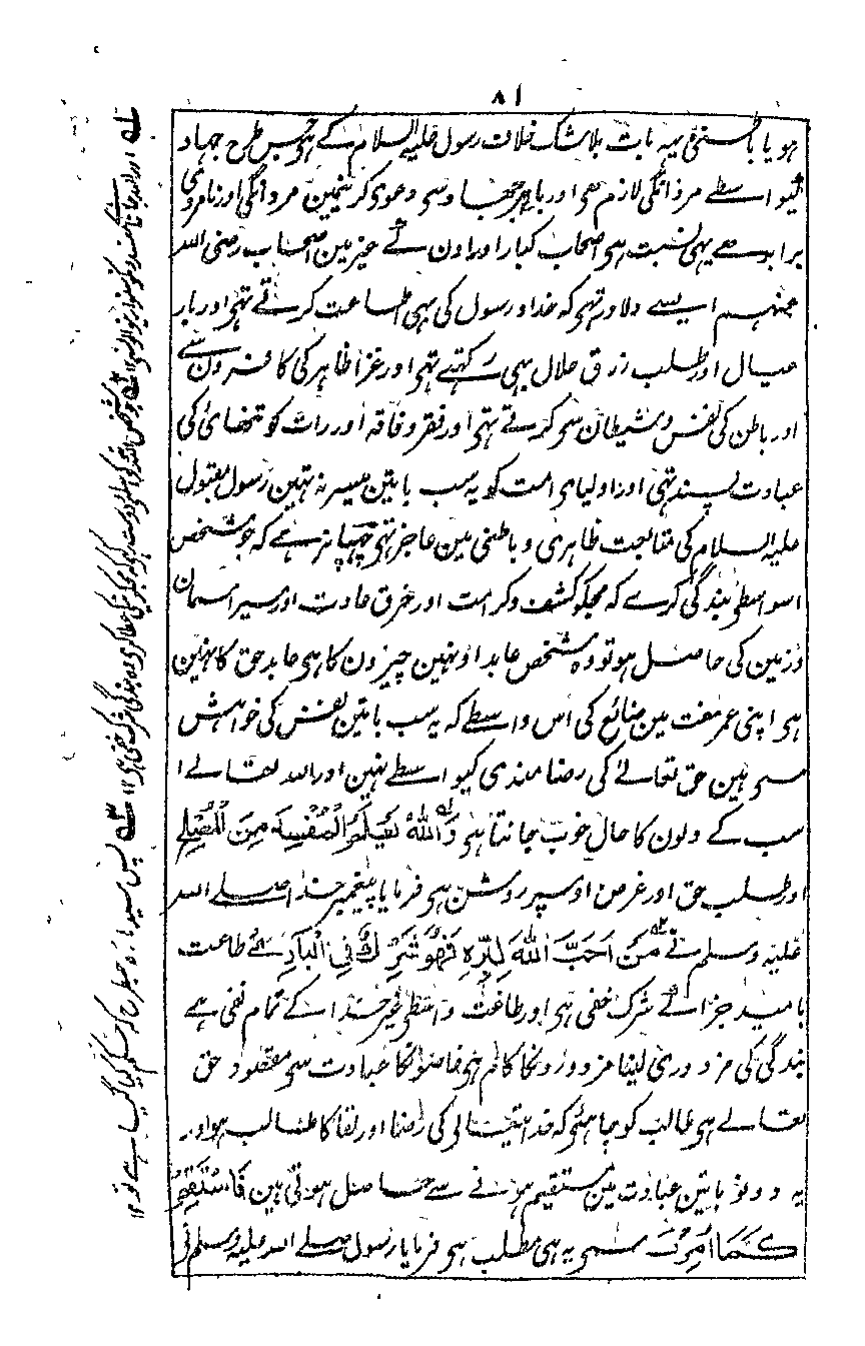 ۸۱
ہو یا باطنی یہہ بات بلاشک خلاف رسول علیہ السلام کے ہی جس طرح جہاد
کیواسطے مردانگی لازم ہی اور باہر جمعیا وسی دعوی کرنیمین مردانگی اور نامردی
برابر ہے یہی نسبت ہی اصحاب کبار اور اون کے غیر مین اصحاب رضی اللہ
عنہم ایسے دلاور تہی کہ خدا و رسول کی بہی اطاعت کرتے تہی اور بار
عیال اور طلب رزق حلال بہی رکہتے تہی اور غزا ظاہر کی کافرون سے
اور باطن کی نفس و شیطان سی کرتے تہی اور فقر و فاقہ اور رات کو تنہائی کی
عبادت پسند تہی اور اولیای امت کو یہ سب باتین میسر نہ تہین رسول مقبول
علیہ السلام کی متابعت ظاہری و باطنی مین عاجز تہی چہپا نرہے کہ جو شخص
اسواسطی بندگی کرے کہ مجکو کشف و کرامت اور خرق عادت اور سیر آسمان
و زمین کی حاصل ہو تو وہ شخص عابد اونہین چیزون کا ہی عابد حق کا نہین
ہی اپنی عمر مفت مین ضائع کی اس واسطے کہ یہ سب باتین نفس کی خواہش
سی ہین حق تعالے کی رضامندی کیواسطے نہین اور اللہ تعالے ا
سب کے دلون کا حال خوب جانتا ہی وَاللّٰهُ يَعْلَمُ الْمُفْسِدَ مِنَ الْمُصْلِحِ
اور طلب حق اور غرض اوسپر روشن ہی فرمایا پیغمبر خدا صلے اللہ
علیہ وسلم نے مَنْ اَحَبَّ اللّٰهَ لِبِرِّهِ فَهُوَ شِرْكٌ فِي طاعت
بامید جزا کے شرک خفی ہی اور طاعت واسطی غیر خدا کے تمام نفی ہے
بندگی کی مزدوری لینا مزدورونکا کام ہی خاصونکا عبادت سی مقصود حق
تعالے ہی طالب کو چاہئی کہ خدایتعالی کی رضا اور لقا کا طالب ہو اور
یہ دونو باتین عبادت مین مستقیم ہونے سے حاصل ہوتی ہین فَاسْتَقِمْ
كَمَا اُمِرْتَ سی یہ ہی مطلب ہی فرمایا رسول صلے اللہ علیہ وسلم نی
اور اللہ جانتا ہے مفسد کو سنوار نیوالونسے ۱۲ جو شخص اللہ کو دوست رکہے کہ مجکو عطا کری وہ بندگی شرک خفی ہی ۱۲ پس سیدہا رہ جس طرح کہ حکم کیا گیا ہے تو ۱۲